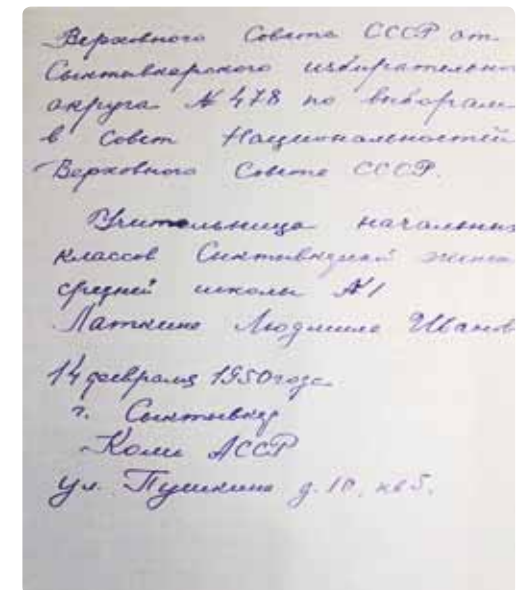 Верховного Совета СССР от
Сыктывкарского избирательно
округа № 478 по выборам
в Совет Национальностей
Верховного Совета СССР.
Учительница начальных
классов Сыктывкарской
средней школы №1
Латкина Людмила Иванов
14 февраля 1950 года.
г. Сыктывкар
Коми АССР
ул. Пушкина д. 10, кв 5.